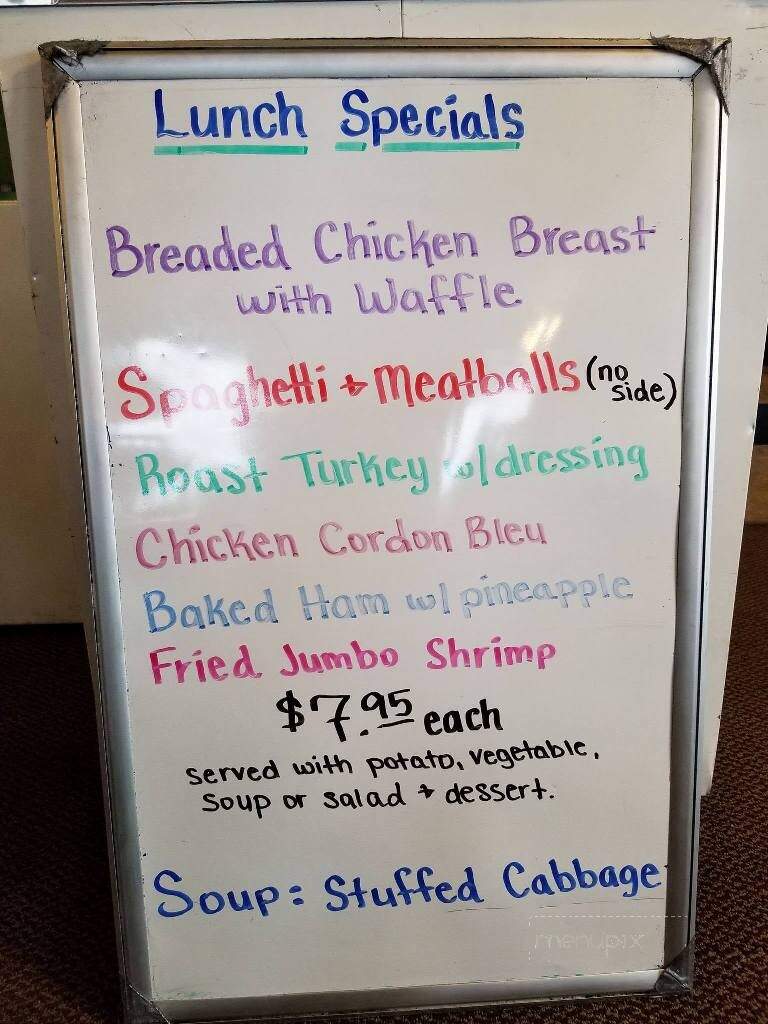 Lunch Specials
Breaded Chicken Breast
with Waffle
Spaghetti + Meatballs (no side)
Roast Turkey w/dressing
Chicken Cordon Bleu
Baked Ham w/pineapple
Fried Jumbo Shrimp
$7.95 each
served with potato, vegetable,
soup or salad + dessert.
Soup: Stuffed Cabbage
menupix